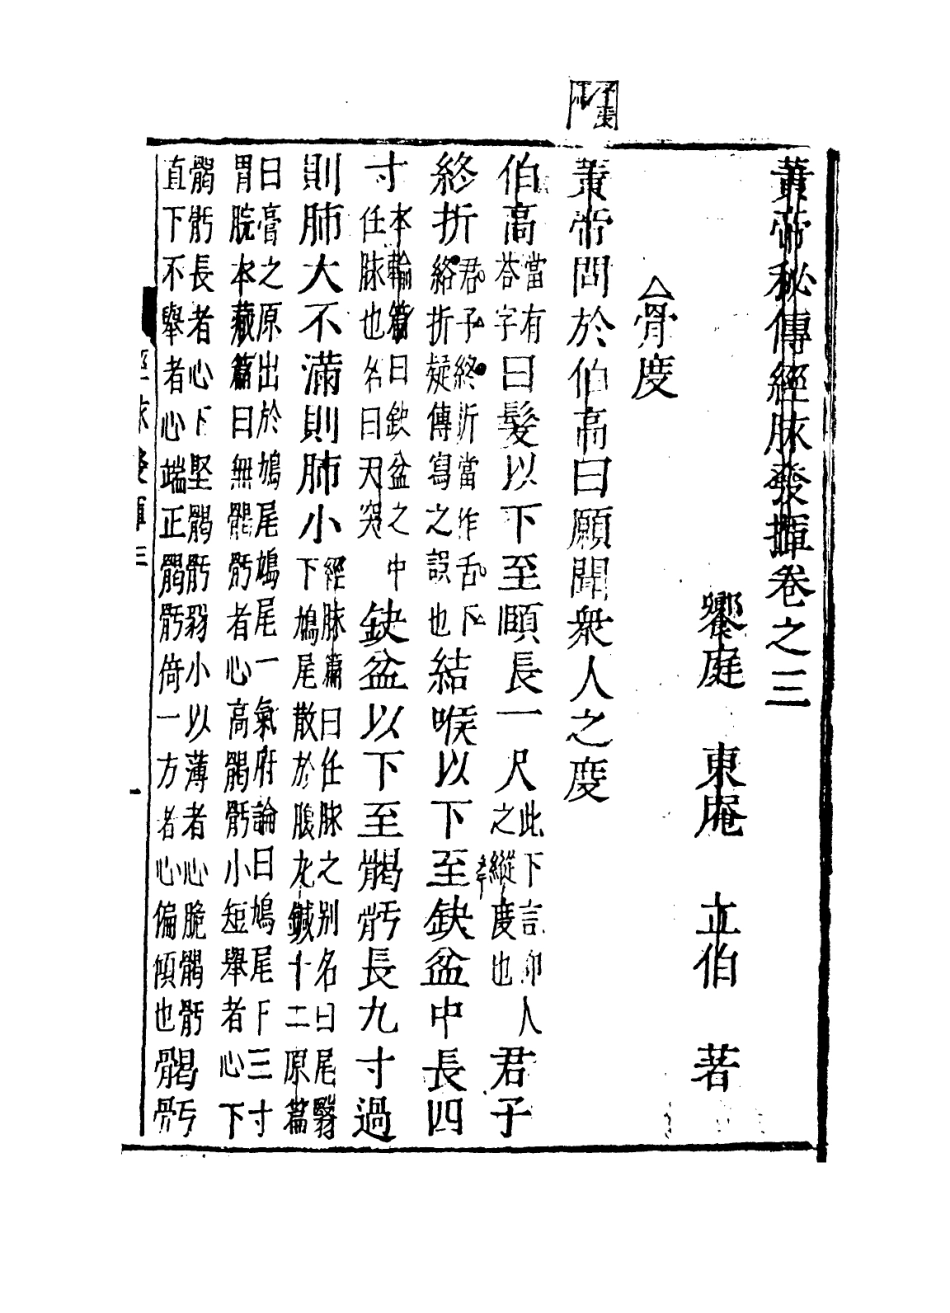 黃帝秘傳經脉發揮卷之三
饗庭 東庵 立伯 著
△骨度
黃帝問於伯高曰願聞衆人之度
伯高當有荅字曰髮以下至頤長一尺此下言仰人之縱度也君子
終折君子終折當作舌下絡折疑傳寫之誤也結喉以下至缺盆中長四
寸本輸篇曰缺盆之中任脉也名曰天突缺盆以下至𩩲骬長九寸過
則肺大不滿則肺小經脉篇曰任脉之别名曰尾翳下鳩尾散於腹九鍼十二原篇
曰膏之原出於鳩尾鳩尾一氣府論曰鳩尾下三寸
胃脘本藏篇曰無𩩲骬者心高𩩲骬小短舉者心下
𩩲骬長者心下堅𩩲骬弱小以薄者心脆𩩲骬直下不舉者心端正𩩲骬倚一方者心偏傾也𩩲骬
經脉發揮三